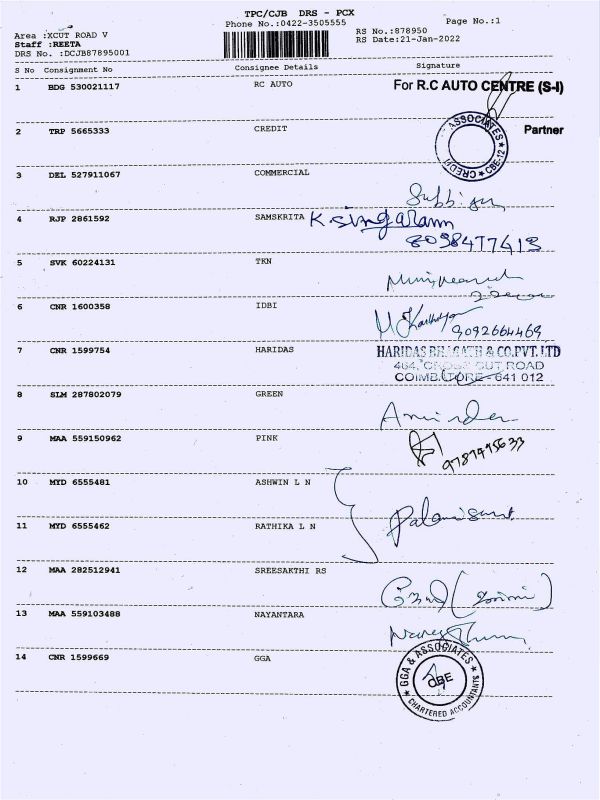 TPC/CJB DRS - PCX
Phone No.:0422-3505555
Page No.:1
Area :XCUT ROAD V
RS No.:878950
Staff :REETA
RS Date:21-Jan-2022
DRS No. :DCJB87895001
S No Consignment No Consignee Details Signature
1 BDG 530021117 RC AUTO For R.C AUTO CENTRE (S-I)
ASSOCIATES
2 TRP 5665333 CREDIT Partner
CREDIT CBE-12
3 DEL 527911067 COMMERCIAL
4 RJP 2861592 SAMSKRITA K.Singaram
8098477413
5 SVK 60224131 TKN
6 CNR 1600358 IDBI
9092664469
7 CNR 1599754 HARIDAS HARIDAS BHAGATH & CO.PVT.LTD
464, CROSS CUT ROAD
COIMBATORE - 641 012
8 SLM 287802079 GREEN
9 MAA 559150962 PINK
9787475633
10 MYD 6555481 ASHWIN L N
11 MYD 6555462 RATHIKA L N
12 MAA 282512941 SREESAKTHI RS
13 MAA 559103488 NAYANTARA
14 CNR 1599669 GGA
GGA & ASSOCIATES
CBE
CHARTERED ACCOUNTANTS